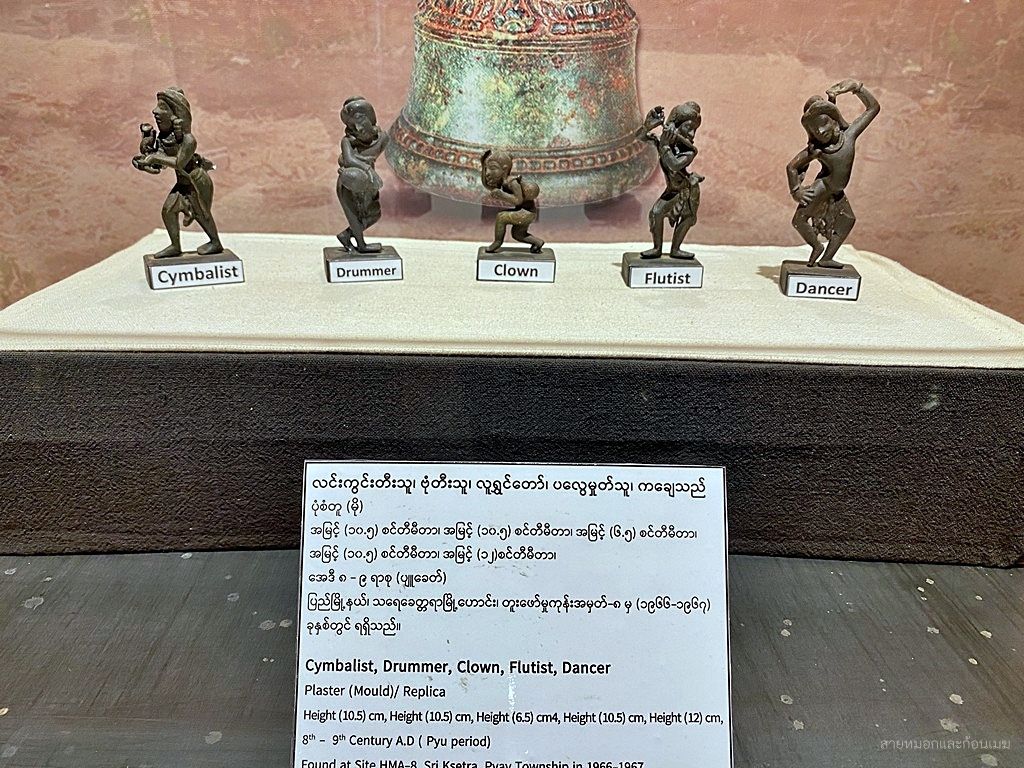 Cymbalist
Drummer
Clown
Flutist
Dancer
လင်းကွင်းတီးသူ၊ ဗုံတီးသူ၊ လူရွှင်တော်၊ ပလွေမှုတ်သူ၊ ကချေသည်
ပုံစံတူ (မို)
အမြင့် (၁၀.၅) စင်တီမီတာ၊ အမြင့် (၁၀.၅) စင်တီမီတာ၊ အမြင့် (၆.၅) စင်တီမီတာ၊
အမြင့် (၁၀.၅) စင်တီမီတာ၊ အမြင့် (၁၂)စင်တီမီတာ၊
အေဒီ ၈ - ၉ ရာစု (ပျူခေတ်)
ပြည်မြို့နယ်၊ သရေခေတ္တရာမြို့ဟောင်း၊ တူးဖော်မှုကုန်းအမှတ်-၈ မှ (၁၉၆၆-၁၉၆၇)
ခုနှစ်တွင် ရရှိသည်။
Cymbalist, Drummer, Clown, Flutist, Dancer
Plaster (Mould)/ Replica
Height (10.5) cm, Height (10.5) cm, Height (6.5) cm4, Height (10.5) cm, Height (12) cm,
8th - 9th Century A.D ( Pyu period)
Found at Site HMA-8, Sri Ksetra, Pyay Township in 1966-1967
สายหมอกและก้อนเมฆ